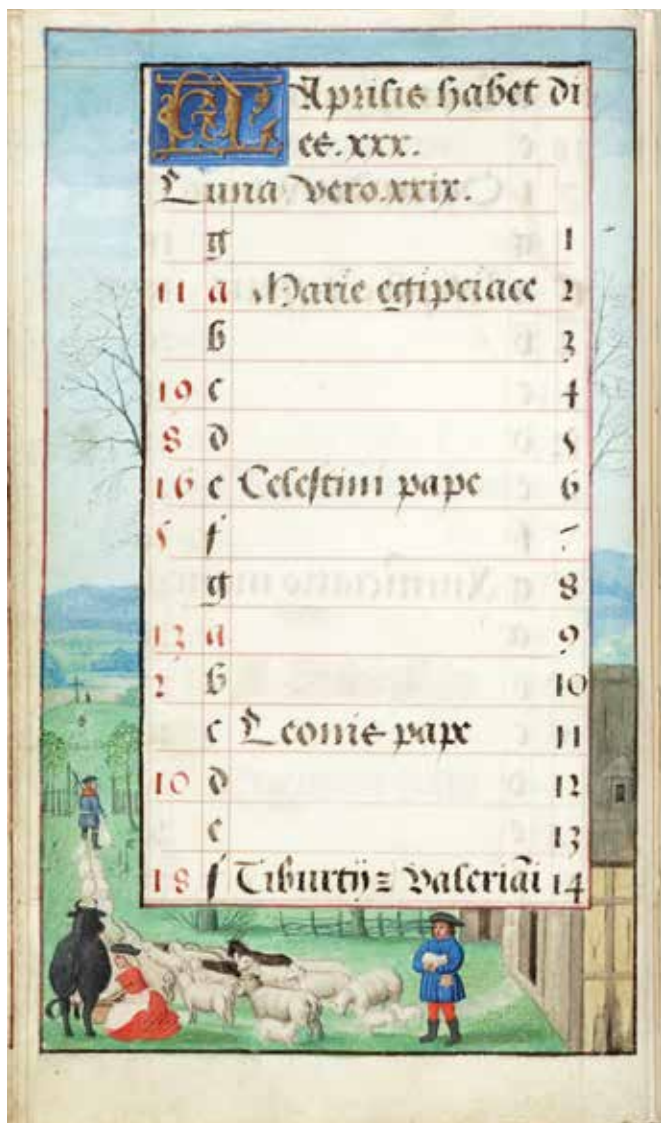 KL Aprilis habet di
es. xxx.
Luna vero. xxix.
g 1
11 A Marie egipciace 2
b 3
19 c 4
8 d 5
16 e Celestini pape 6
5 f 7
g 8
13 A 9
2 b 10
c Leonis pape 11
10 d 12
e 13
18 f Tiburtij z valeriāi 14